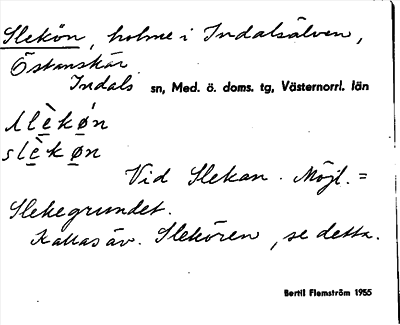 Slekön, holme i Indalsälven,
Östanskär
Indals sn, Med. ö. doms. tg, Västernorrl. län
slèkø̀n
slèkøn
Vid Slekan. Möjl. =
Slekegrundet.
Kallas äv. Slekören, se detta.
Bertil Flemström 1955